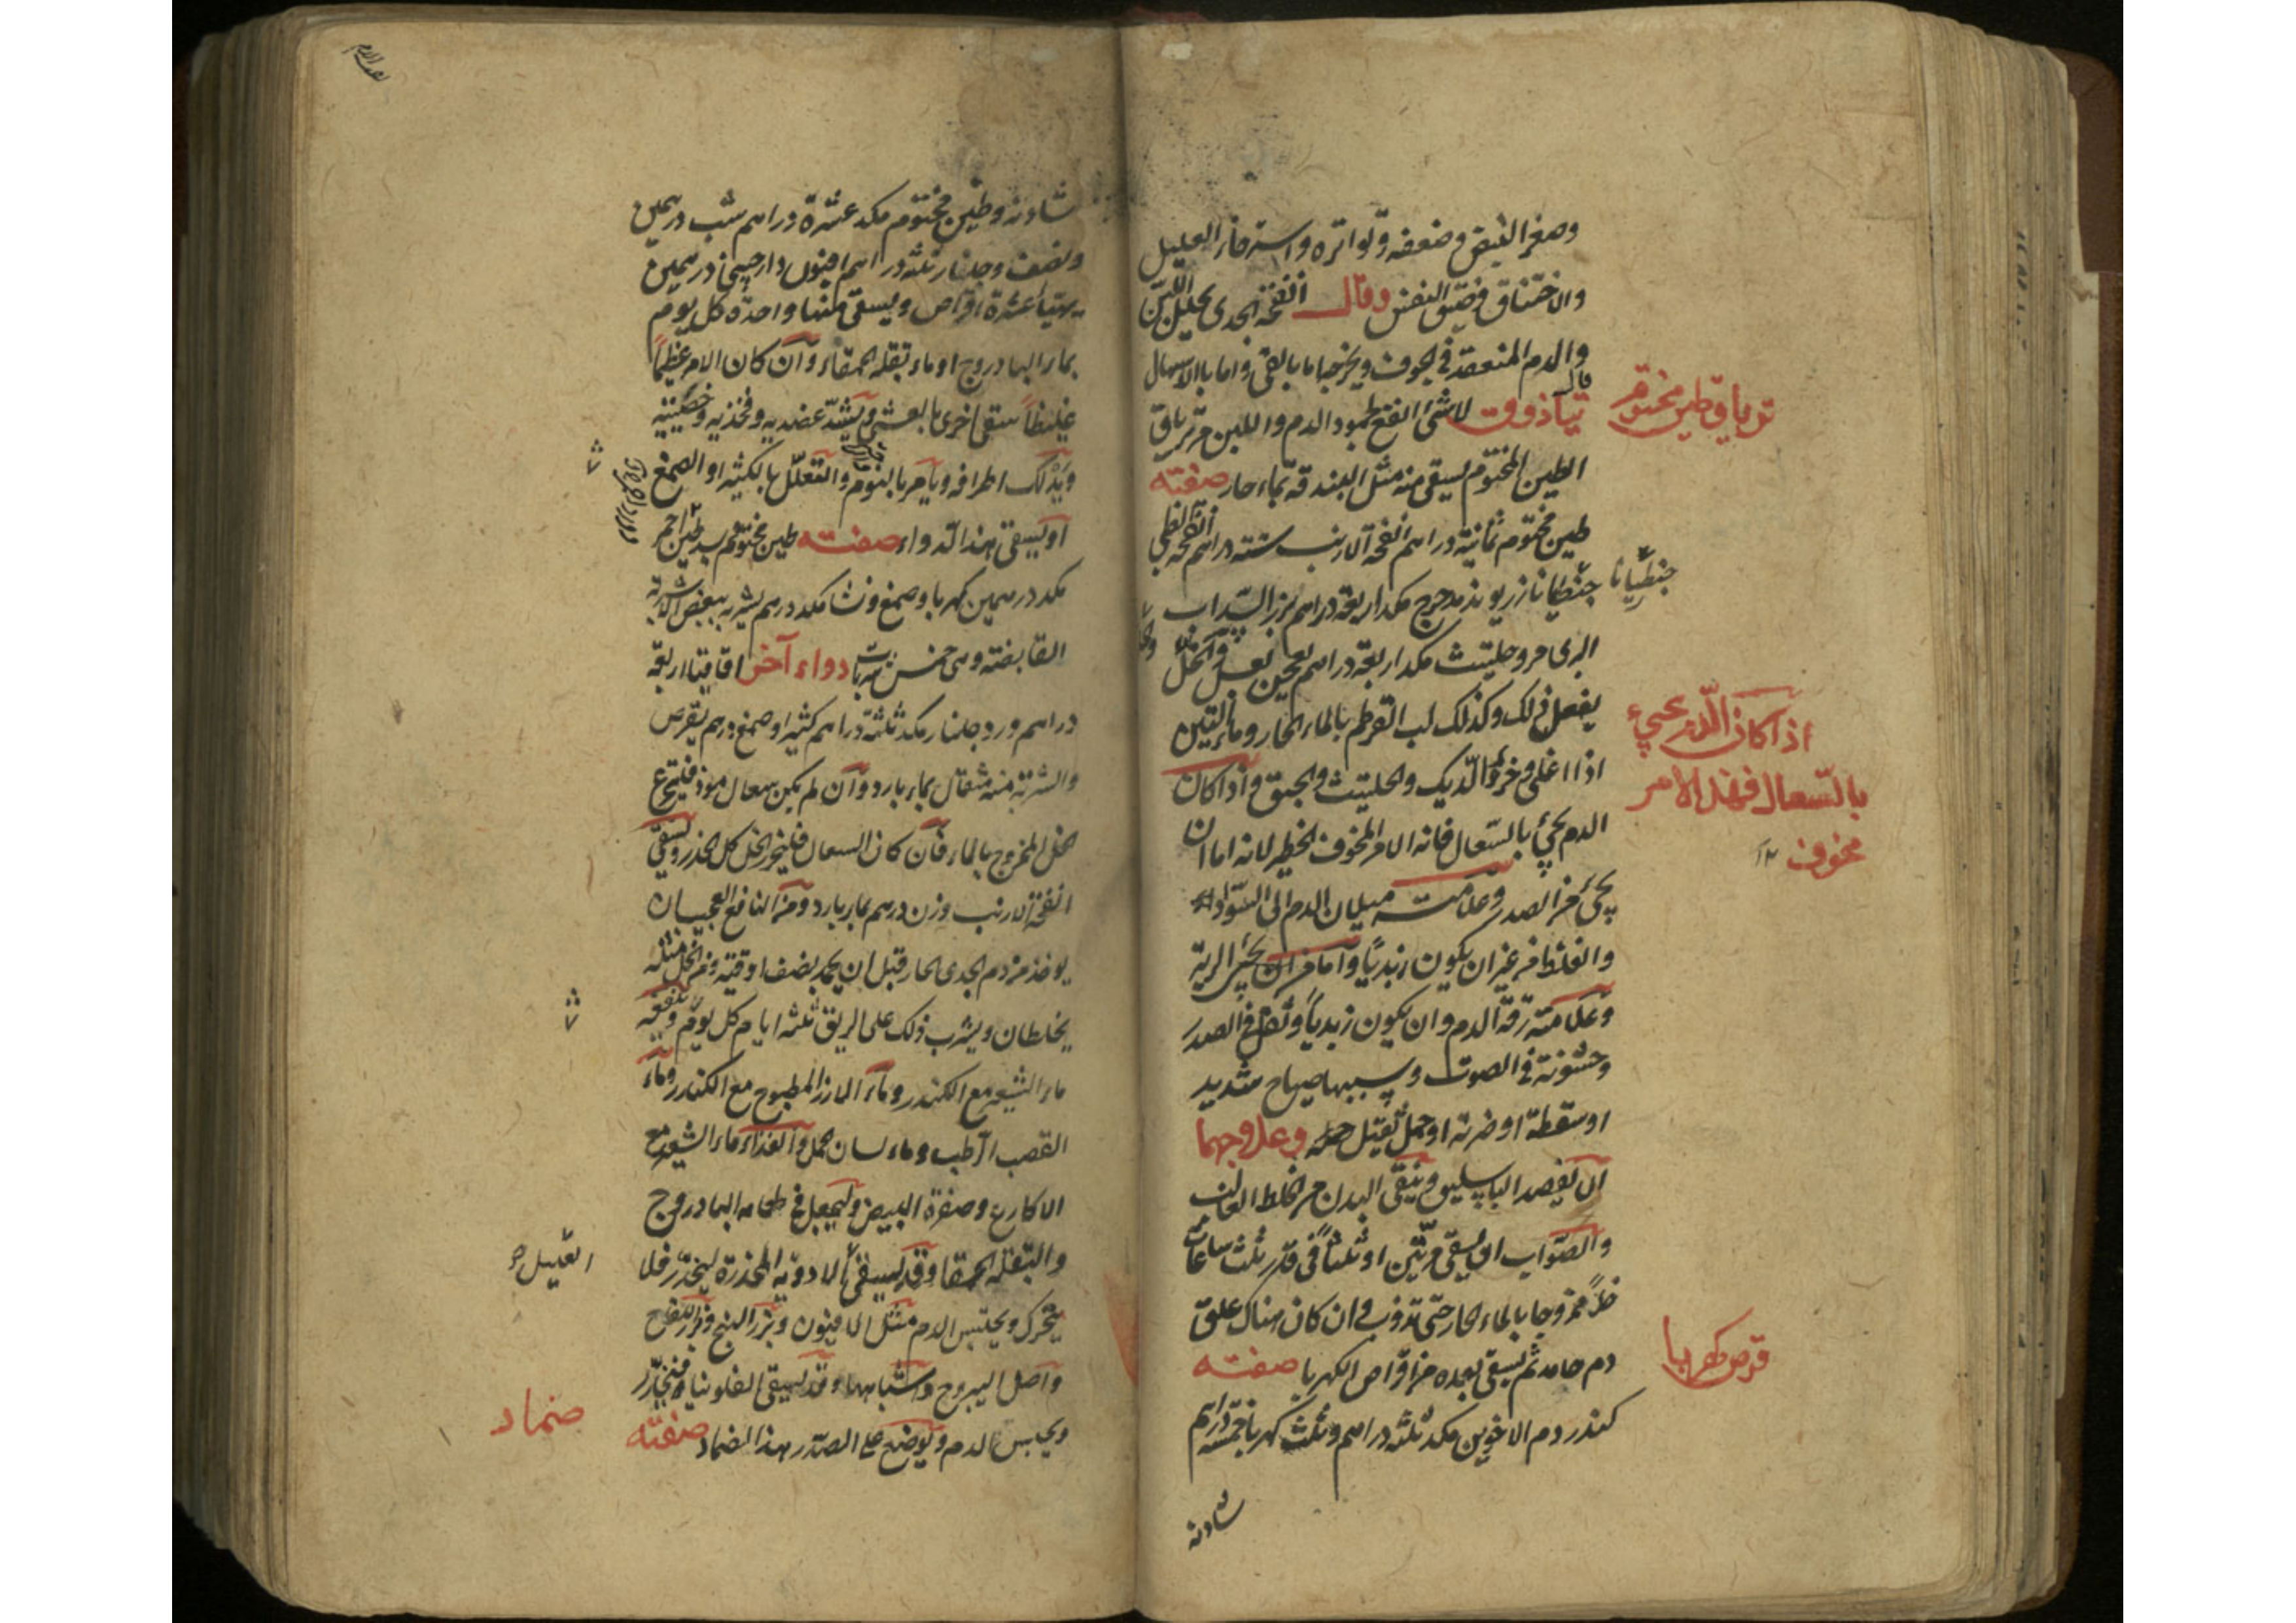 وصغر النبض وضعفه وتواتره واسترخاء العليل
والاختناق وضيق النفس وقال انفحة الجدى يحلل اللبن
والدم المنعقد فى الجوف ويخرجها اما بالقئ واما بالاسهال
تياذوق قال لا شئ انفع لجمود الدم واللبن من ترياق
ترياق طين مختوم
الطين المختوم يسقى منه مثل البندقة بماء حار صفته
طين مختوم ثمانية دراهم انفحة الارنب ستة دراهم انفحة الظبى
جنطيانا زريوند مدحرج مكد اربعة دراهم بزر السداب
جنطيانا
البرى مر وحلتيث مكد اربعة دراهم يعجن بعسل والخل
يفعل ذلك وكذلك لب القرطم بالماء الحار وماء التين
اذا اغلى وخرؤ الديك والحلتيث والحبق واذا كان
اذا كان الدم يجئ
بالسعال فهذا الامر
مخوف ١٢
الدم يجئ بالسعال فانه الامر المخوف الخطير لانه اما ان
يجئ من الصدر وعلامته ميلان الدم الى السواد
والغلظ من غير ان يكون زبديا واما من ان يجئ من الرية
وعلامته رقة الدم وان يكون زبديا وثقل فى الصدر
وخشونة فى الصوت وسببها صياح شديد
او سقطة او ضربة او حمل ثقيل وعلاجها
ان يفصد الباسليق وينقى البدن من الخلط الغالب
والصواب ان يسقى مرتين او ثلثا فى قدر ثلث ساعات
خلا ممزوجا بالماء الحار حتى تذوب ان كان هناك علق
دم جامد ثم يسقى بعده من اقراص الكهربا صفته
قرص كهربا
كندر دم الاخوين مكد ثلثة دراهم وثلث كهربا خمسة دراهم
شادنه
شادنه وطين مختوم مكد عشرة دراهم شب درهمين
ونصف وجلنار ثلثة دراهم افيون دارچينى درهمين
يهيأ عشرة اقراص ويسقى منها واحدة كل يوم
بماء البادروج او ماء بقلة الحمقاء وان كان الامر عظيما
غليظا سقى اخرى بالعشى ويشد عضديه وفخذيه وخصيتيه
ويدلك اطرافه ويأمر بالنوم والتعلل بالكثيرا او الصمغ
او يسقى هذا الدواء صفته طين مختوم بسد طين احمر
مكد درهمين كهربا وصمغ ونشا مكد درهم يشربه ببعض الاشربة
القابضة وهى خمس شربات دواء آخر اقاقيا اربعة
دراهم ورد جلنار مكد ثلثة دراهم كثيرا وصمغ درهم يقرص
والشربة منه مثقال بماء بارد وان لم يكن سعال موذ فيتجرع
الخل الممزوج بالماء فان كان السعال فليحذر الخل كل الحذر ويسقى
انفحة الارنب وزن درهم بماء بارد ومن النافع العجيب ان
يوخذ من دم الجدى الحار قبل ان يجمد نصف اوقية ومن الخل مثله
يخلطان ويشرب ذلك على الريق ثلثة ايام كل يوم وينفعه
ماء الشيعر مع الكندر وماء المارز المطبوخ مع الكندر وماء
القصب الرطب وماء لسان الحمل والغذاء ماء الشيعر مع
الاكارع وصفرة البيض وليجعل فى طعامه البادروج
والبقلة الحمقا وقد يسقى الادوية المخدرة ليخدر فلا
العليل
يتحرك ويحتبس الدم مثل الافيون وبزر البنج وبزر اللفاح
واصل اليبروح واشباهها وقد يسقى الفلونيا فيخدر
ويحبس الدم ويوضع على الصدر هذا الضماد صفته
ضماد